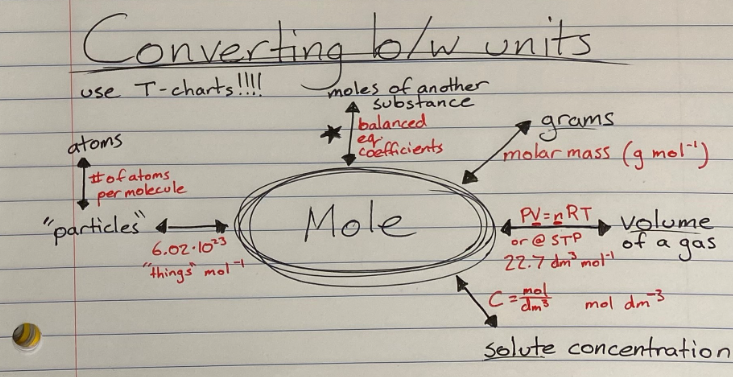 Converting b/w units
use T-charts!!!!
moles of another
substance
balanced
eq.
coefficients
grams
molar mass (g mol⁻¹)
atoms
# of atoms
per molecule
"particles"
6.02·10²³
"things" mol⁻¹
Mole
PV=nRT
or @ STP
22.7 dm³ mol⁻¹
volume
of a gas
C = mol/dm³ mol dm⁻³
solute concentration